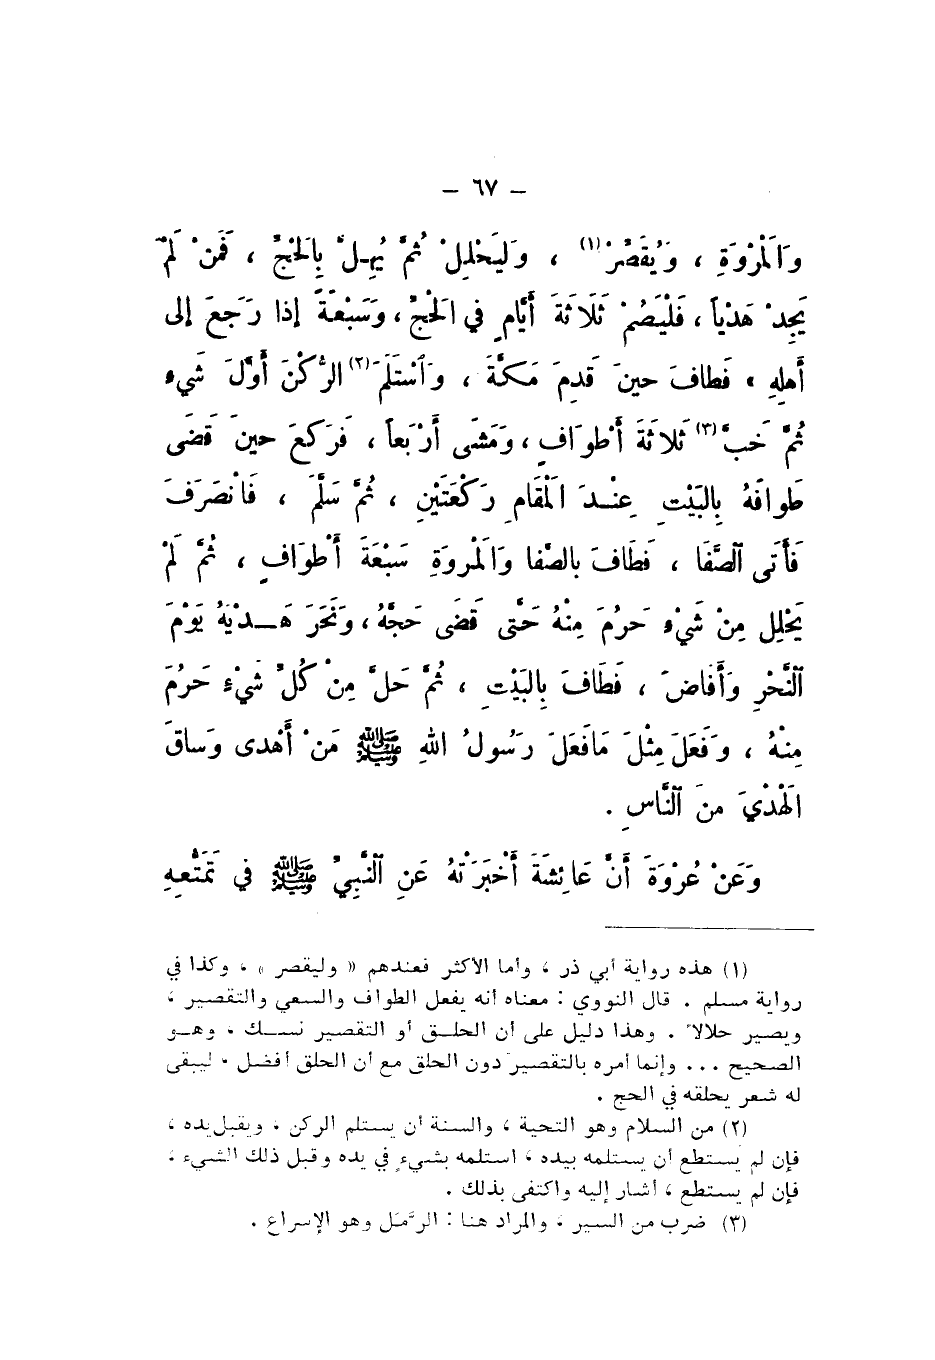 – ٦٧ –
وَالْمَرْوَةِ ، وَيُقَصِّرْ (١) ، وَلْيَحْلِلْ ثُمَّ يُهِلَّ بِالْحَجِّ ، فَمَنْ لَمْ
يَجِدْ هَدْيًا ، فَلْيَصُمْ ثَلَاثَةَ أَيَّامٍ فِي الْحَجِّ ، وَسَبْعَةً إِذا رَجَعَ إِلى
أَهلِهِ » فَطافَ حينَ قَدِمَ مَكَّةَ ، وَاسْتَلَمَ (٢) الرُّكْنَ أَوَّلَ شَيء
ثُمَّ خَبَّ (٣) ثَلاثَةَ أَطْوَافٍ ، وَمَشَى أَرْبَعاً ، فَرَكَعَ حينَ قَضَى
طَوافَهُ بِالبَيْتِ عِنْدَ الْمَقَامِ رَكْعَتَيْنِ ، ثُمَّ سَلَّمَ ، فَانْصَرَفَ
فَأَتَى الصَّفَا ، فَطَافَ بالصَّفا وَالَمْروَةِ سَبْعَةَ أَطْوَافٍ ، ثُمَّ لَمْ
يَحْلِل مِنْ شَيْء حَرُمَ مِنْهُ حَتَّى قَضَى حَجَّهُ ، وَنَحَرَ هَدْيَهُ يَوْمَ
النَّحْرِ وَأَفَاضَ ، فَطَافَ بِالبَيْتِ ، ثُمَّ حَلَّ مِنْ كُلِّ شَيْءٍ حَرُمَ
مِنْهُ ، وَفَعَلَ مِثْلَ مَافَعَلَ رَسُولُ اللهِ ﷺ مَنْ أَهْدى وَساقَ
الَهْدْيَ مِنَ النَّاسِ .
وَعَنْ عُرْوَةَ أَنَّ عَائِشَةَ أَخْبَرَتْهُ عَنِ النَّبِيِّ ﷺ في تَمَتُّعِهِ
(١) هذه رواية أبي ذر ، وأما الأكثر فعندهم « وليقصر » ، وكذا في
رواية مسلم . قال النووي : معناه أنه يفعل الطواف والسعي والتقصير ،
ويصير حلالاً . وهذا دليل على أن الحلق أو التقصير نسك ، وهو
الصحيح ... وإنما أمره بالتقصير دون الحلق مع أن الحلق أفضل ، ليبقى
له شعر يحلقه في الحج .
(٢) من السلام وهو التحية ، والسنة أن يستلم الركن ، ويقبل يده ،
فإن لم يستطع أن يستلمه بيده ، استلمه بشيءٍ في يده وقبل ذلك الشيء ،
فإن لم يستطع ، أشار إليه واكتفى بذلك .
(٣) ضرب من السير ، والمراد هنا : الرَّمَل وهو الإسراع .